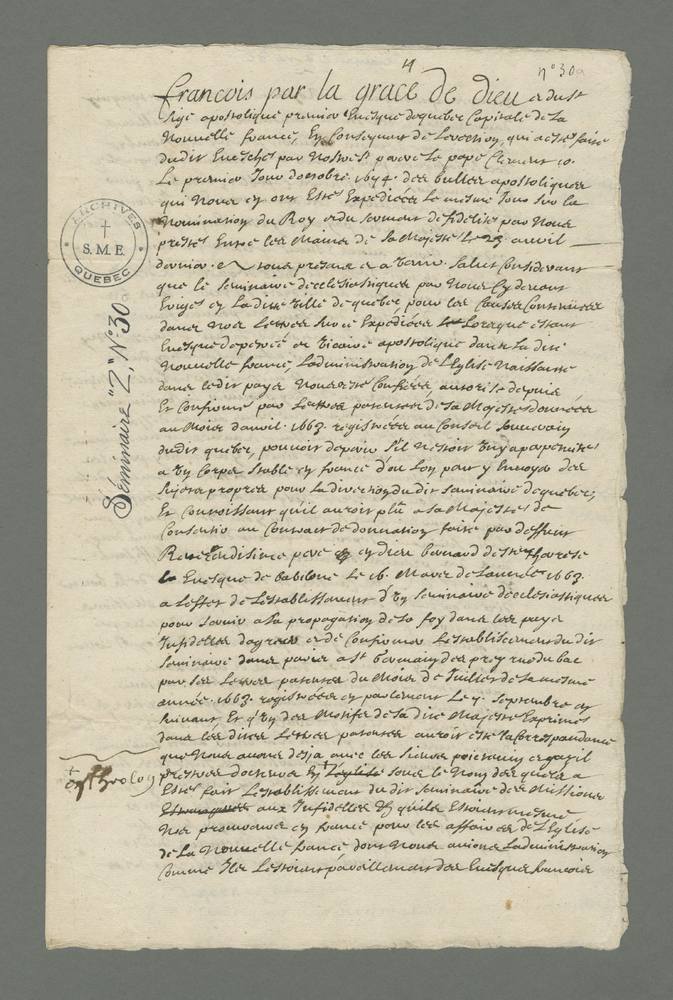 4
n° 30
françois par la grace de dieu et du st
siege apostolique premier Evesque de quebec Capitale de la
nouvelle france, En Consequence de Lerection, qui a esté faite
du dit Evesché par nostre st pere le pape Clement 10.
Le premier Jour doctobre 1674. des bulles apostoliques
qui nous en ont Esté Expediées le mesme Jour sur la
nomination du Roy et du serment de fidelité par nous
presté Entre les Mains de sa Majesté le 23 avril
dernier. A tous presens et a venir. salut Considerant
que le seminaire decclesiastiques par nous Cy devant
Erigé en La ditte ville de quebec, pour les Causes Contenües
dans nos Lettres sur ce Expediées Lorsque estant
Evesque de petrée et vicaire apostolique dans La dite
nouvelle france, Ladministration de LEglise naissante
dans le dit pays nous este Conferée, autorisé depuis
Et Confirmé par Lettres patentes de sa Majesté données
au Mois davril 1663. registrées au Conseil souverain
du dit quebec, pouvoit deperir s'il nestoit uny a perpetuité
a un Corps stable en france d'ou Lon peut y Envoyer des
sujets propres pour La direction du dit seminaire de quebec,
Et Connoissant quil auroit plû a sa Majesté de
Consentir au Contract de donnation faite par deffunt
Reverendissime pere en dieu bernard de ste therese
Evesque de babilone le 16. Mars de Lannée 1663.
a Leffet de Lestablissement d'un seminaire decclesiastiques
pour servir a La propagation de la foy dans les pays
Infidelles dagreer et de Confirmer Lestablissement du dit
seminaire dans paris a st Germain des prez rue du bac
par ses Lettres patentes du Mois de Juillet de La mesme
année 1663. registrées en parlement Le 7. septembre en
suivant Et qu'un des Motifs de sa dite Majesté Exprimés
dans les dites Lettres patentes auroit esté La Correspondance
que nous avons desja avec les sieurs poitevin et gazil
prestres docteurs En + sous le nom desquels a
+ en theologie
Esté fait Lestablissement du dit seminaire des Missions
aux Infidelles Et quils Estoient mesme
nos procureurs en france pour les affaires de LEglise
de La nouvelle france dont nous avions Ladministration
Comme Ils Lestoient pareillement des Evesques francois
ARCHIVES
S.M.E.
QUEBEC
Séminaire "2", N° 30